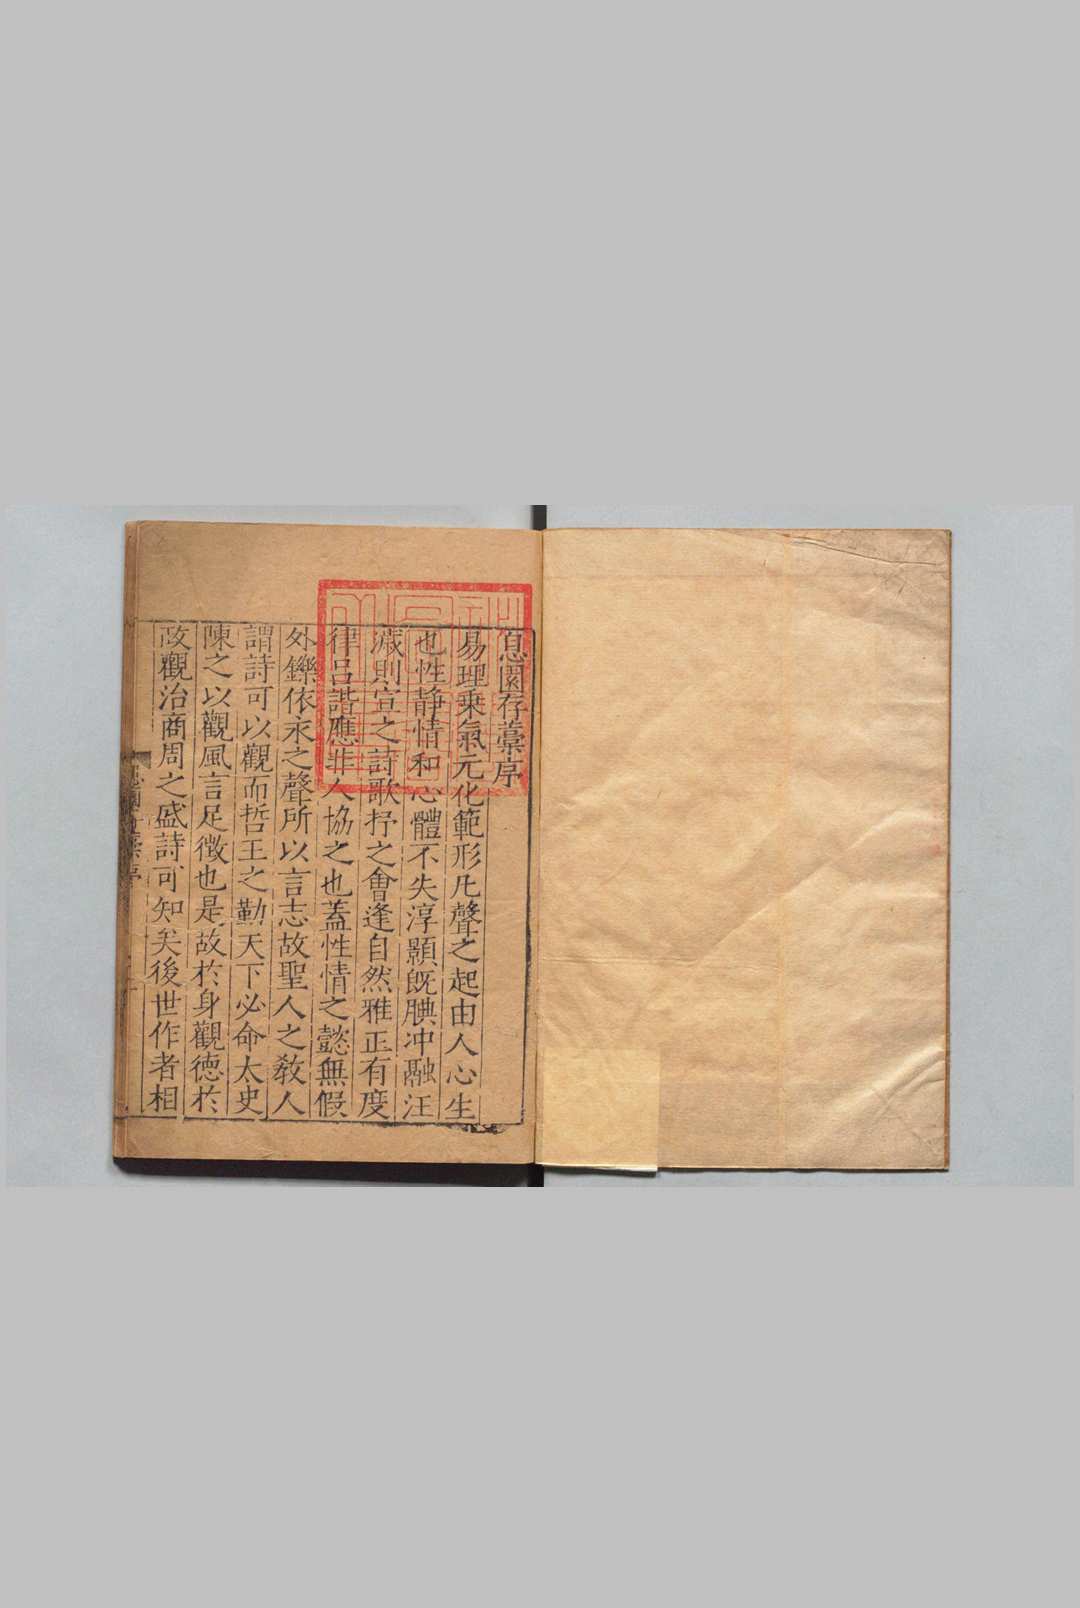 息園存藁序
易理乗氣元化範形凡聲之起由人心生
也性静情和心體不失淳顥旣腆冲融汪
濊則宣之詩歌抒之會逢自然雅正有度
律吕諧應非人協之也蓋性情之懿無假
外鑠依永之聲所以言志故聖人之敎人
謂詩可以觀而哲王之勤天下必命太史
陳之以觀風言足徵也是故於身觀德於
政觀治商周之盛詩可知矣後世作者相